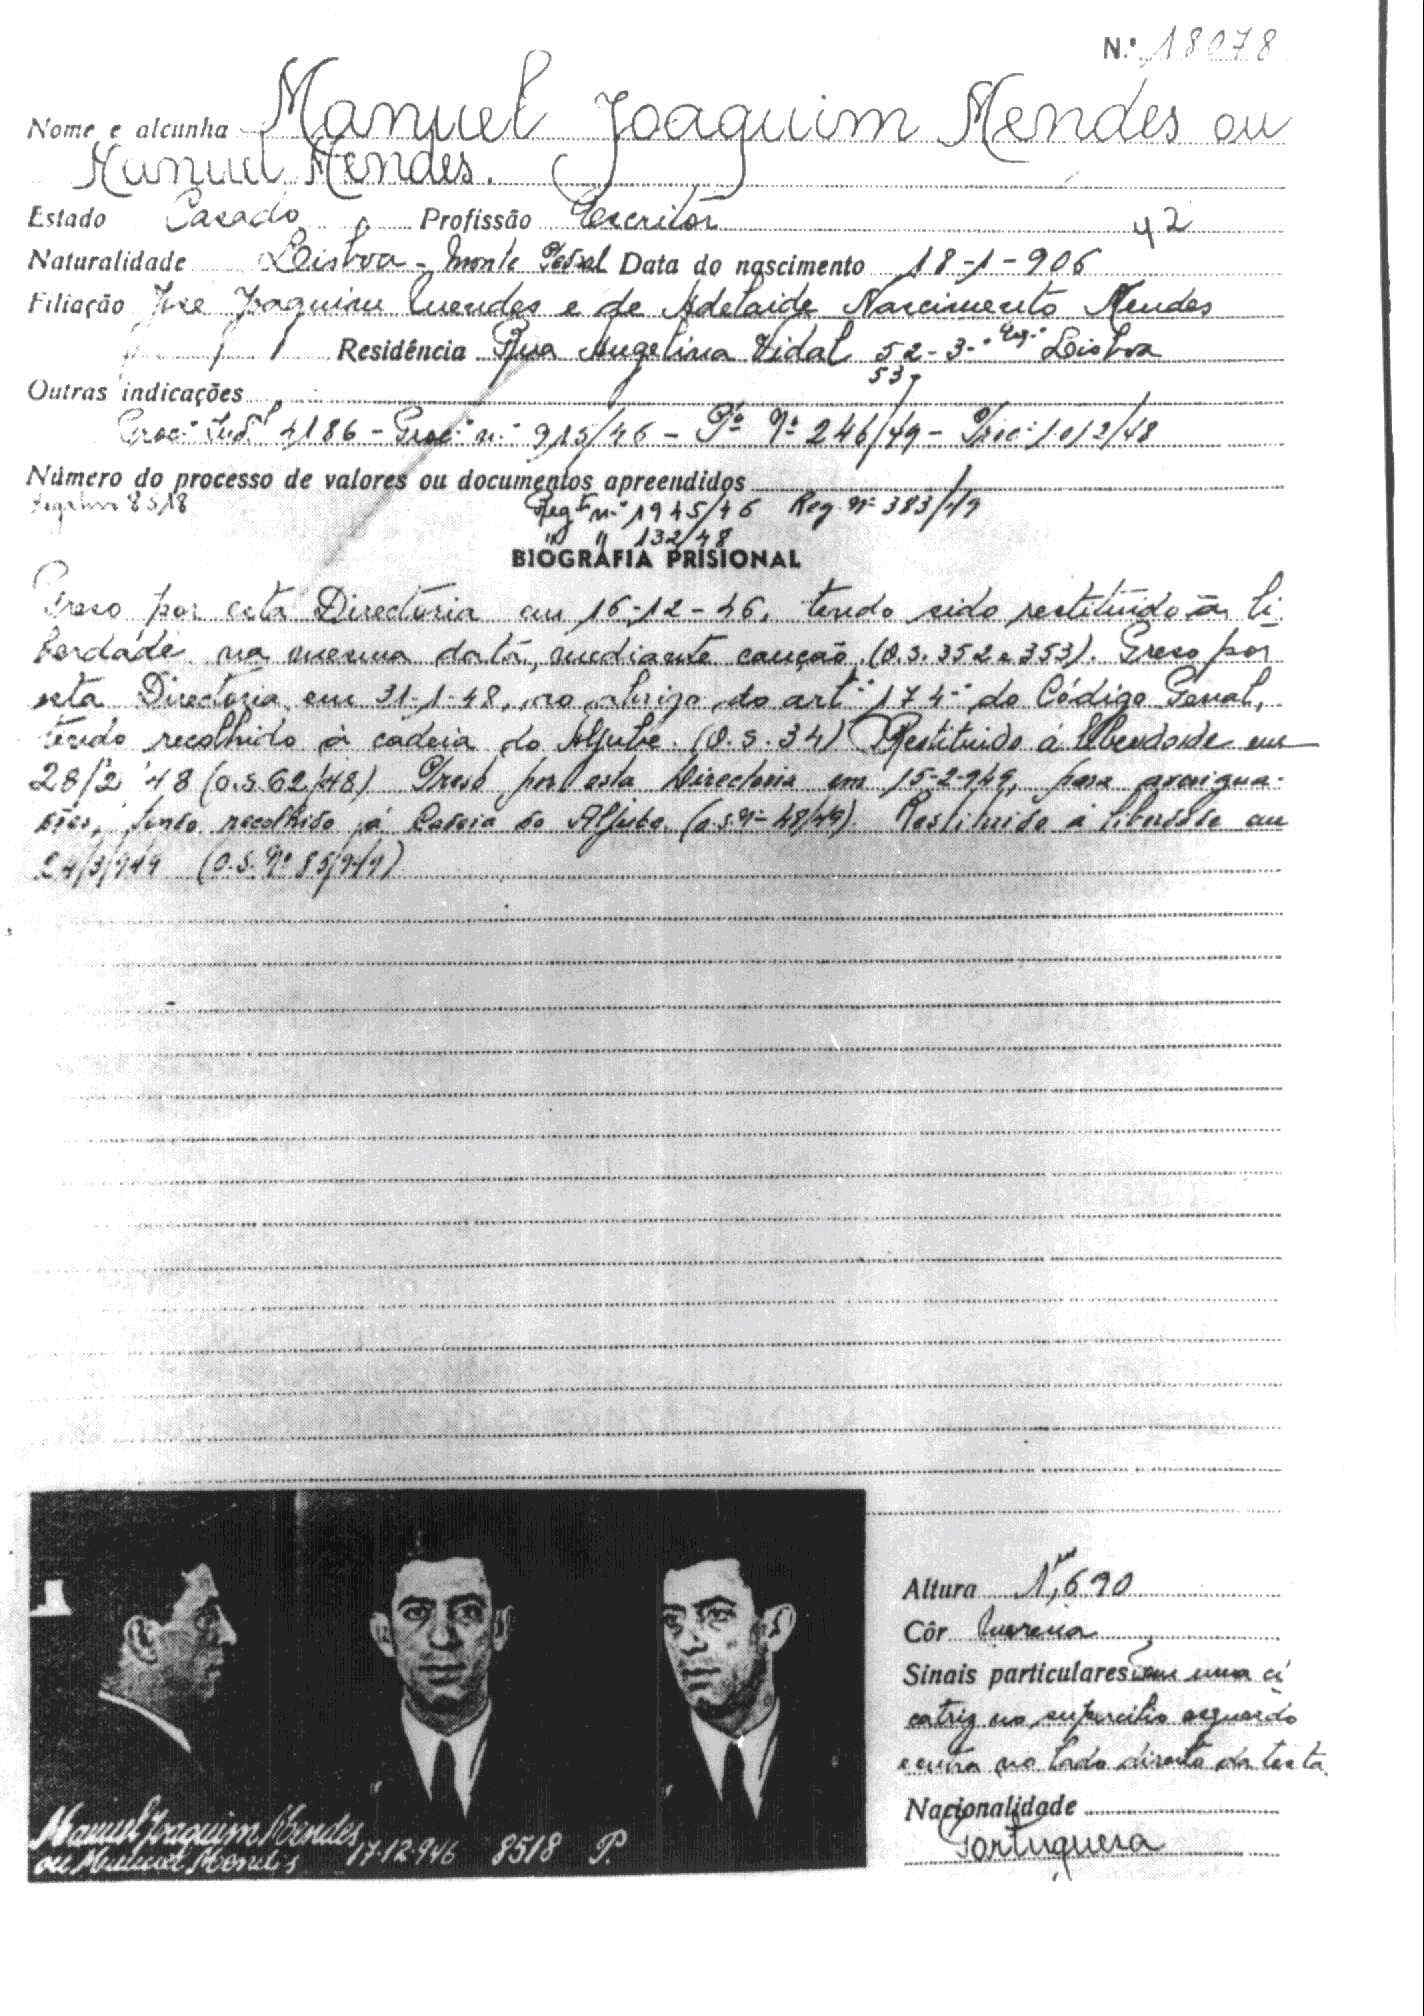 N.º 18078
Nome e alcunha Manuel Joaquim Mendes ou
Manuel Mendes.
Estado Casado Profissão Escritor
42
Naturalidade Lisboa - Monte Pedral Data do nascimento 18-1-906
Filiação José Joaquim Mendes e de Adelaide Nascimento Mendes
Residência Rua Angelina Vidal 52-3-º Esq.º Lisboa
53
Outras indicações
Proc.º Ind.al 4186 - Proc.º n.º 915/46 - Pº Nº 246/49 - Proc: 1012/48
Número do processo de valores ou documentos apreendidos
8518
Reg.to n.º 1945/46 Reg. nº 383/49
" " 132/48
BIOGRAFIA PRISIONAL
Preso por esta Directoria em 16-12-46, tendo sido restituído à li
berdade na mesma data, mediante caução. (O.S. 352 e 353). Preso por
esta Directoria em 31-1-48, ao abrigo do artº 174º do Código Penal,
tendo recolhido à cadeia do Aljube. (O.S. 34) Restituido á liberdade em
28/2/48 (O.S. 62/48) Preso por esta Directoria em 15-2-949, para averigua-
ções, tendo recolhido á Cadeia do Aljube. (O.S. nº 48/49). Restituido á liberdade em
24/3/949 (O.S. Nº 85/949)
Altura 1,m690
Côr Morena
Sinais particulares Tem uma ci
catriz no supercilio esquerdo
e outra no lado direito da testa
Nacionalidade
Portuguesa
Manuel Joaquim Mendes
ou Manuel Mendes 17-12-946 8518 P.